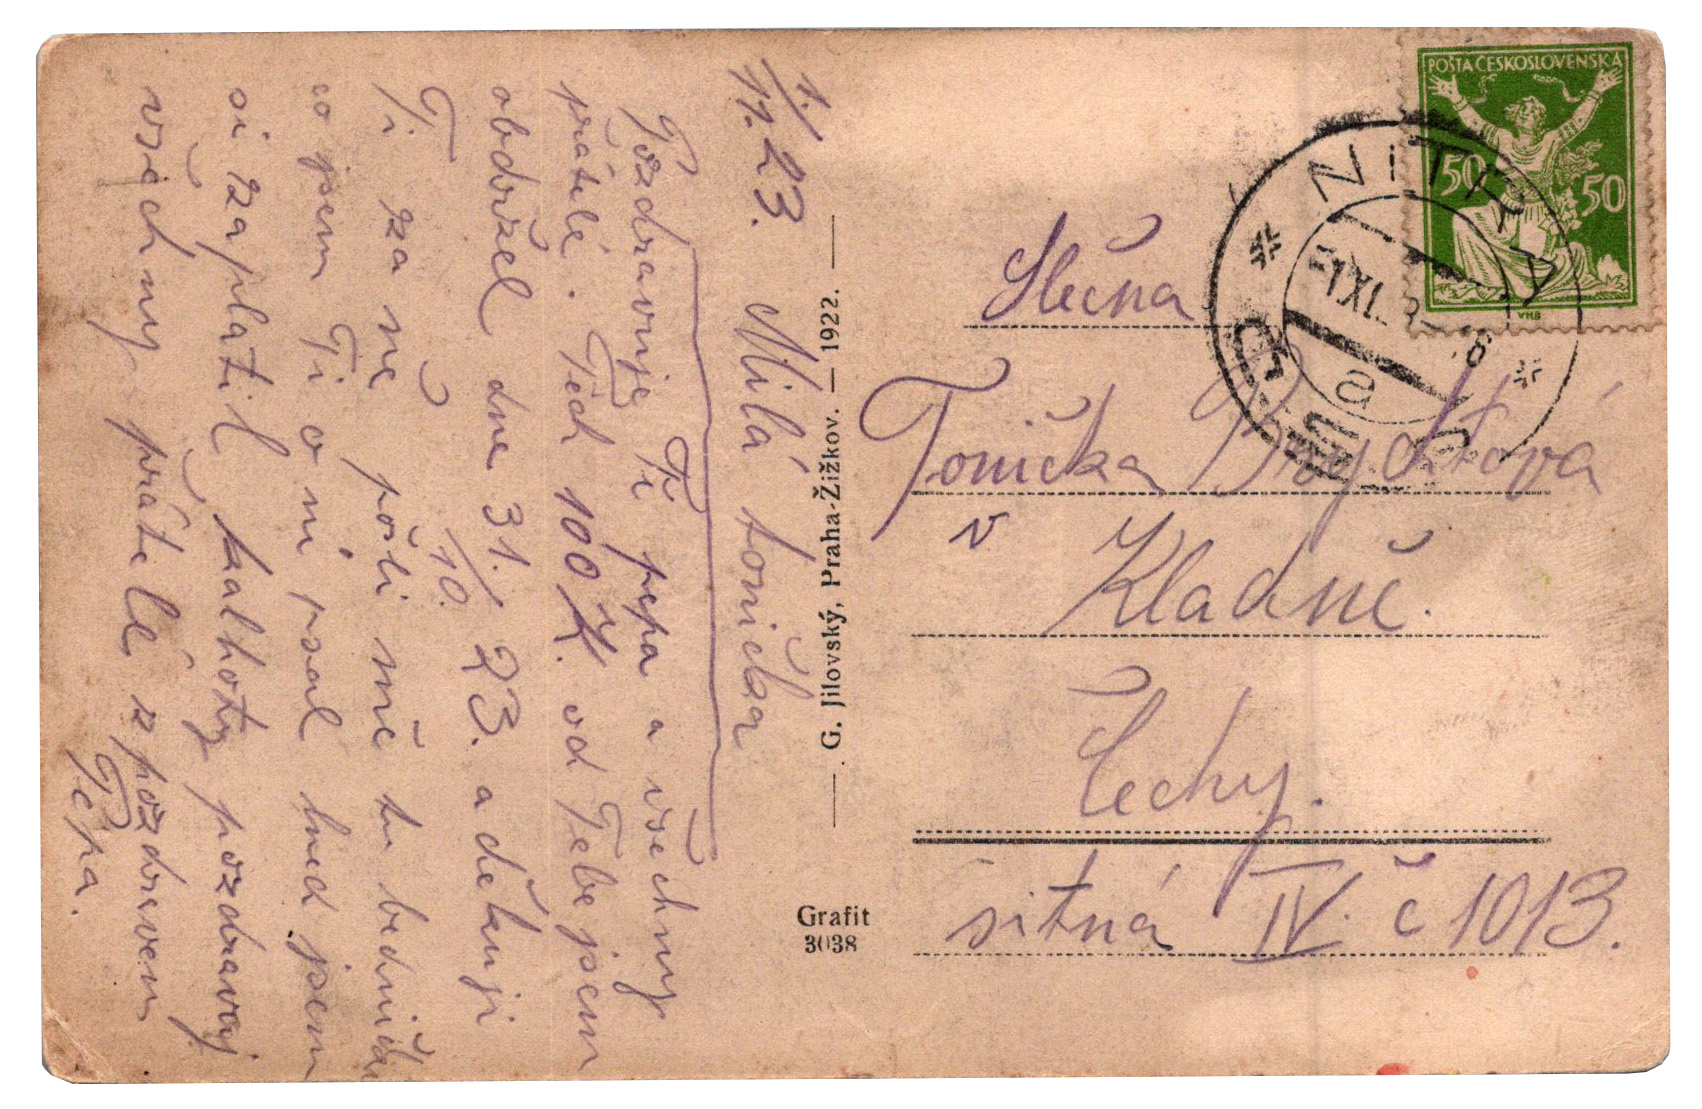 1./11. 23. Milá tonička
Pozdravuje Ti pepa a všechny
prátelé. Těch 100 K. od Tebe jsem
obdržel dne 31./10. 23. a děkuji
Ti za ně pošli mě tu bedničku
co jsem Ti o ni psal hned jsem
si zaplatil kalhoty pozdravuj
všechny přátelé s pozdravem
Pepa.
G. Jílovský, Praha-Žižkov. — 1922.
Grafit
3038
POŠTA ČESKOSLOVENSKÁ
50 50
VHB
NITRA
1.XI.
a
Slečna
Tonička Brychtová
v Kladně.
Čechy.
sitná IV. č 1013.